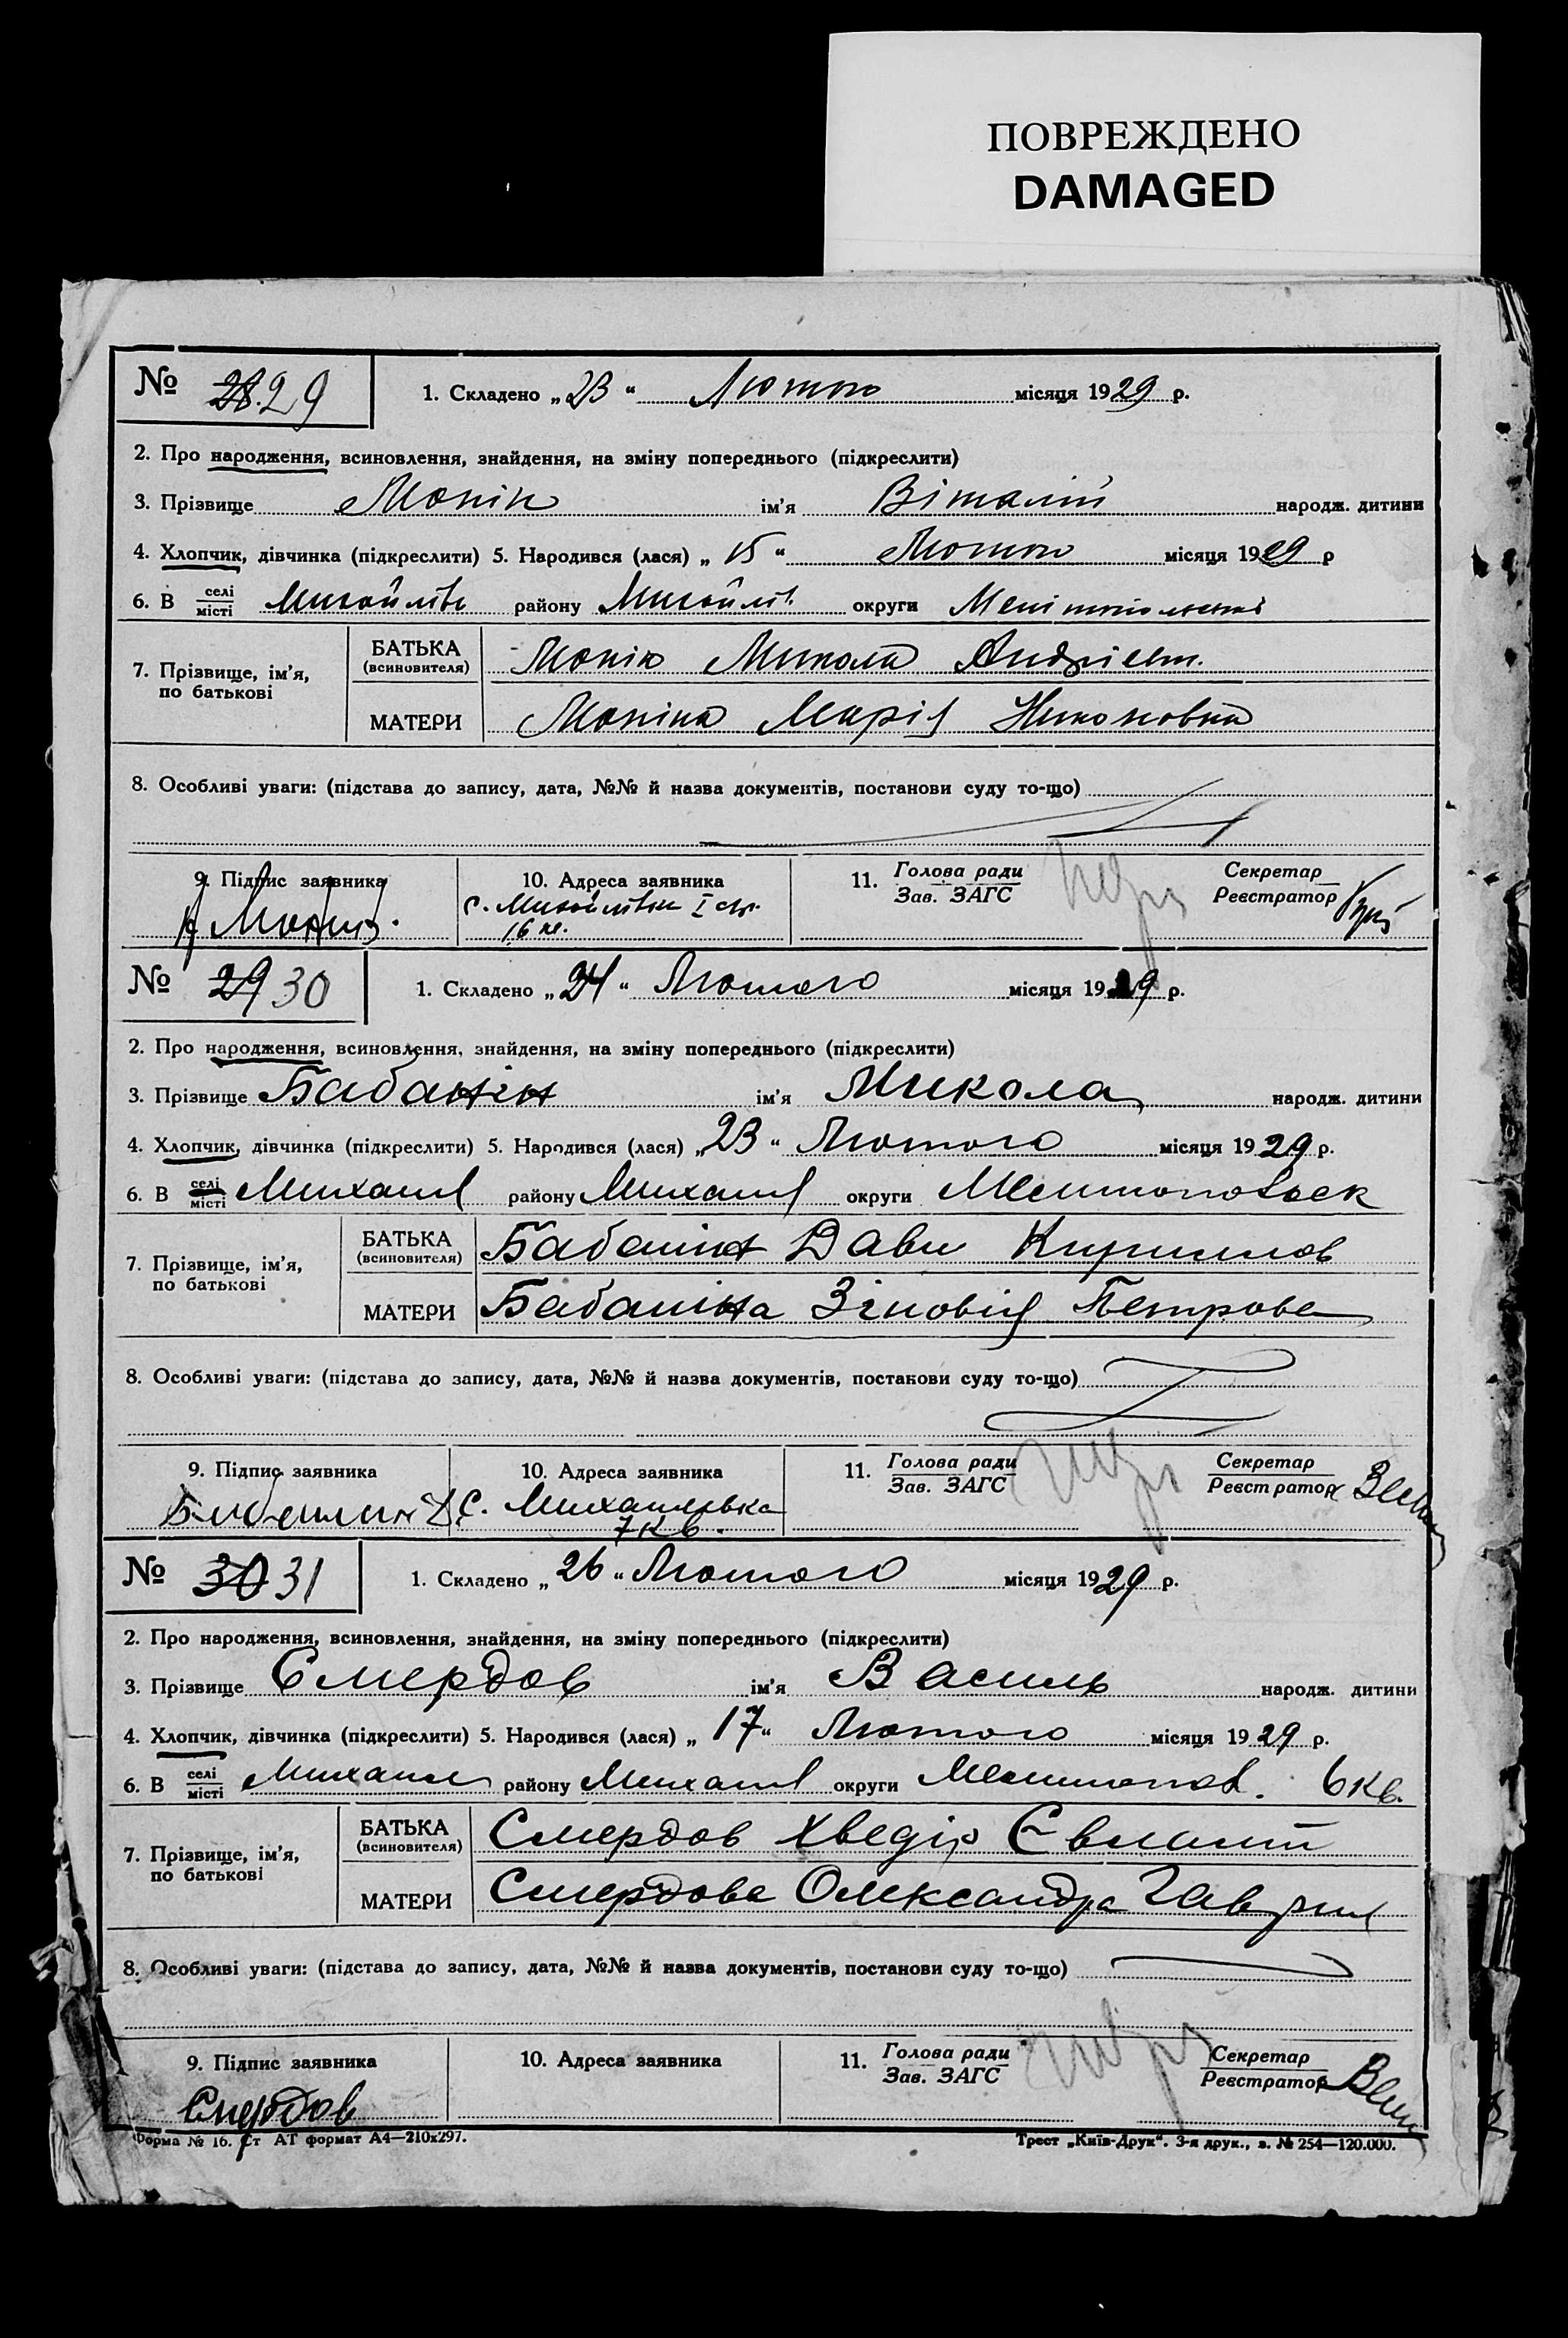 ПОВРЕЖДЕНО
DAMAGED
№ 28. 29
1. Складено „23“ Лютого місяця 1929 р.
2. Про народження, всиновлення, знайдення, на зміну попереднього (підкреслити)
3. Прізвище Монін ім'я Віталій народж. дитини
4. Хлопчик, дівчинка (підкреслити) 5. Народився (лася) „15“ Лютого місяця 1929 р
6. В селі місті Михайлів району Михайлів. округи Мелітопольської
7. Прізвище, ім'я, по батькові
БАТЬКА (всиновителя) Монін Микола Андрієв.
МАТЕРИ Моніна Марія Никоновна
8. Особливі уваги: (підстава до запису, дата, №№ й назва документів, постанови суду то-що)
9. Підпис заявника Монин
10. Адреса заявника
с. Михайлівки I
16 кв.
11. Голова ради Зав. ЗАГС
Секретар Реєстратор
№ 29 30
1. Складено „24“ Лютого місяця 1929 р.
2. Про народження, всиновлення, знайдення, на зміну попереднього (підкреслити)
3. Прізвище Бабанін ім'я Микола народж. дитини
4. Хлопчик, дівчинка (підкреслити) 5. Народився (лася) „23“ Лютого місяця 1929 р.
6. В селі місті Михайл району Михайл округи Мелитопольск
7. Прізвище, ім'я, по батькові
БАТЬКА (всиновителя) Бабанін Дави Кириллов
МАТЕРИ Бабаніна Зіновія Петрова
8. Особливі уваги: (підстава до запису, дата, №№ й назва документів, постанови суду то-що)
9. Підпис заявника
10. Адреса заявника
С. Михайлівка
7 кв.
11. Голова ради Зав. ЗАГС
Секретар Реєстратор
№ 30 31
1. Складено „26“ Лютого місяця 1929 р.
2. Про народження, всиновлення, знайдення, на зміну попереднього (підкреслити)
3. Прізвище Смердов ім'я Василь народж. дитини
4. Хлопчик, дівчинка (підкреслити) 5. Народився (лася) „17“ Лютого місяця 1929 р.
6. В селі місті Михайл району Михайл округи Мелитопол. 6 кв.
7. Прізвище, ім'я, по батькові
БАТЬКА (всиновителя) Смердов Хведір
МАТЕРИ Смердова Олександра Гаврил
8. Особливі уваги: (підстава до запису, дата, №№ й назва документів, постанови суду то-що)
9. Підпис заявника Смердов
10. Адреса заявника
11. Голова ради Зав. ЗАГС
Секретар Реєстратор
Форма № 16. Ст АТ формат А4—210x297.
Трест „Київ-Друк“. 3-я друк., з. № 254—120.000.